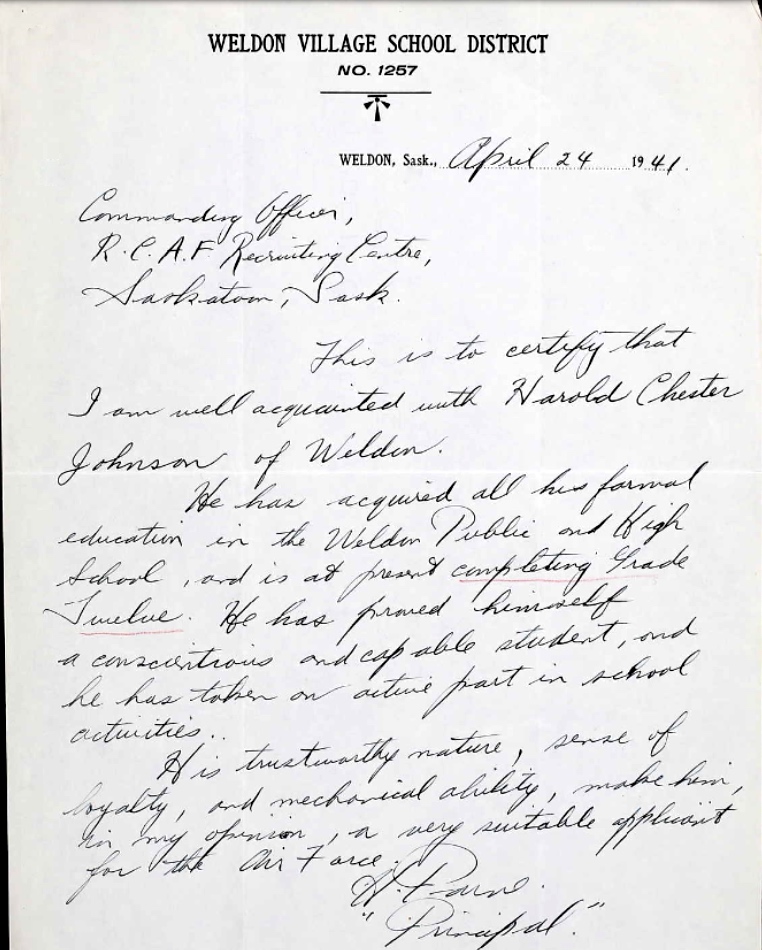 WELDON VILLAGE SCHOOL DISTRICT
NO. 1257
WELDON, Sask., April 24 1941.
Commanding Officer,
R.C.A.F. Recruiting Centre,
Saskatoon, Sask.
This is to certify that
I am well acquainted with Harold Chester
Johnson of Weldon.
He has acquired all his formal
education in the Weldon Public and High
School, and is at present completing Grade
Twelve. He has proved himself
a conscientious and capable student, and
he has taken an active part in school
activities..
His trustworthy nature, sense of
loyalty, and mechanical ability, make him,
in my opinion, a very suitable applicant
for the Air Force.
"Principal."